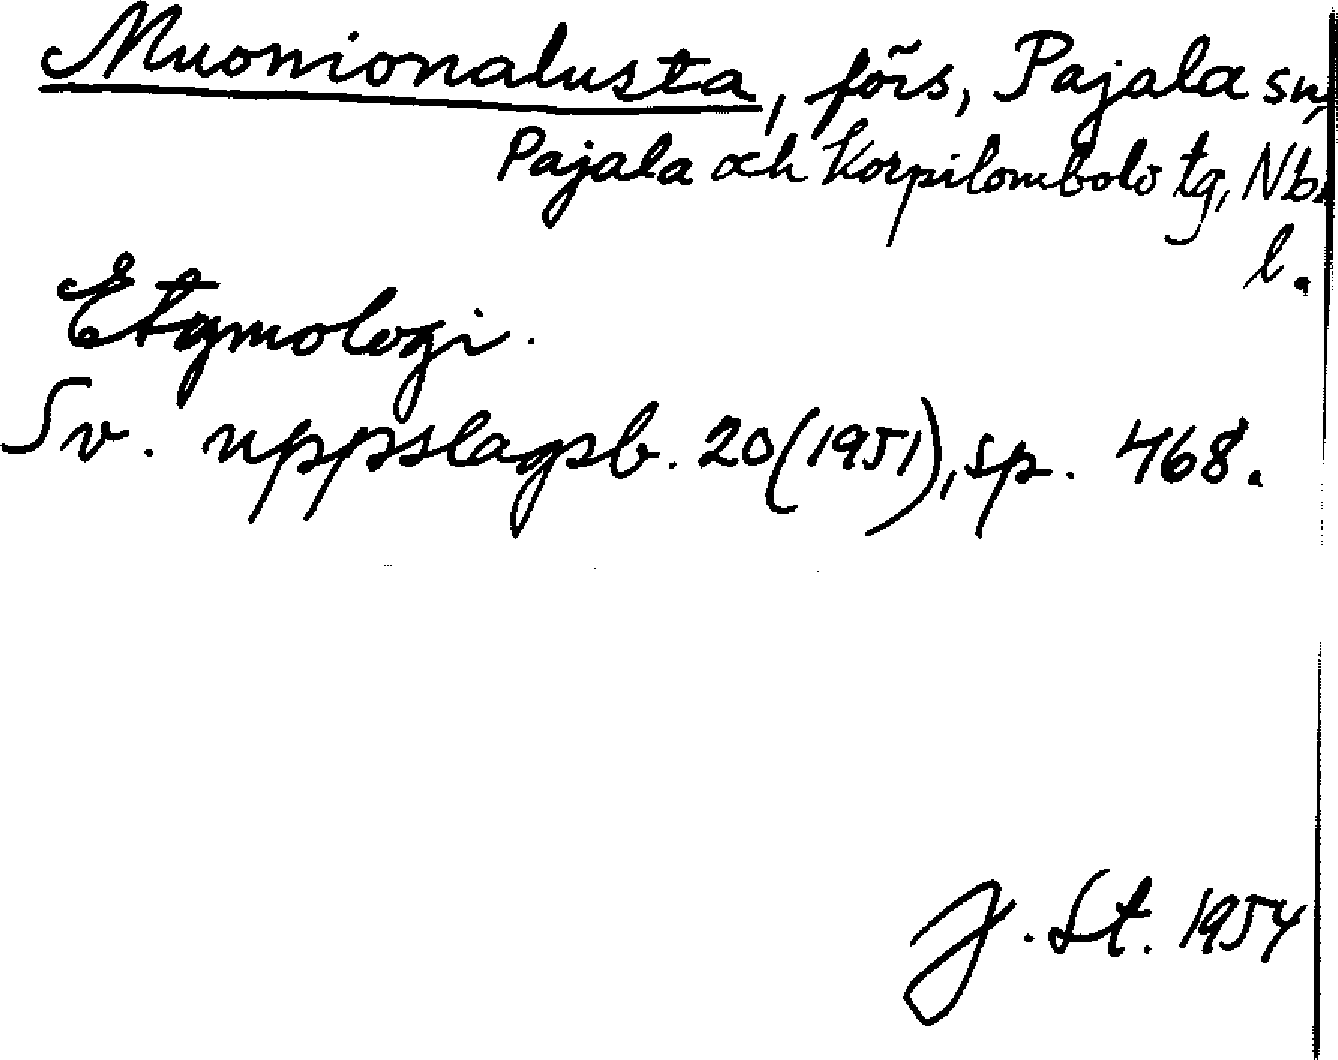 Muonionalusta, förs, Pajala sn,
Pajala och Korpilombolo tg, Nb.
l.
Etymologi.
Sv. uppslagsb. 20(1951), sp. 468.
J. St. 1954